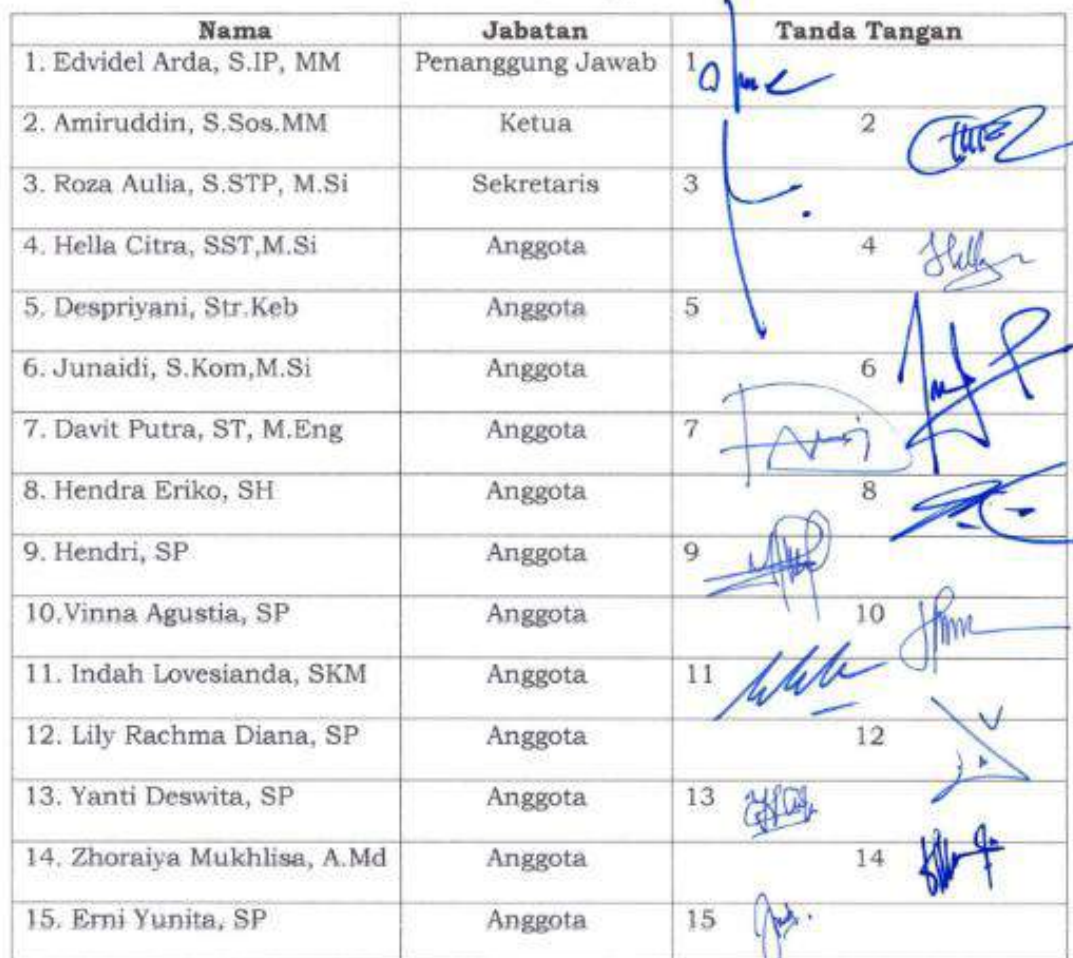 Nama Jabatan Tanda Tangan
1. Edvidel Arda, S.IP, MM Penanggung Jawab 1
2. Amiruddin, S.Sos.MM Ketua 2
3. Roza Aulia, S.STP, M.Si Sekretaris 3
4. Hella Citra, SST,M.Si Anggota 4
5. Despriyani, Str.Keb Anggota 5
6. Junaidi, S.Kom,M.Si Anggota 6
7. Davit Putra, ST, M.Eng Anggota 7
8. Hendra Eriko, SH Anggota 8
9. Hendri, SP Anggota 9
10.Vinna Agustia, SP Anggota 10
11. Indah Lovesianda, SKM Anggota 11
12. Lily Rachma Diana, SP Anggota 12
13. Yanti Deswita, SP Anggota 13
14. Zhoraiya Mukhlisa, A.Md Anggota 14
15. Erni Yunita, SP Anggota 15